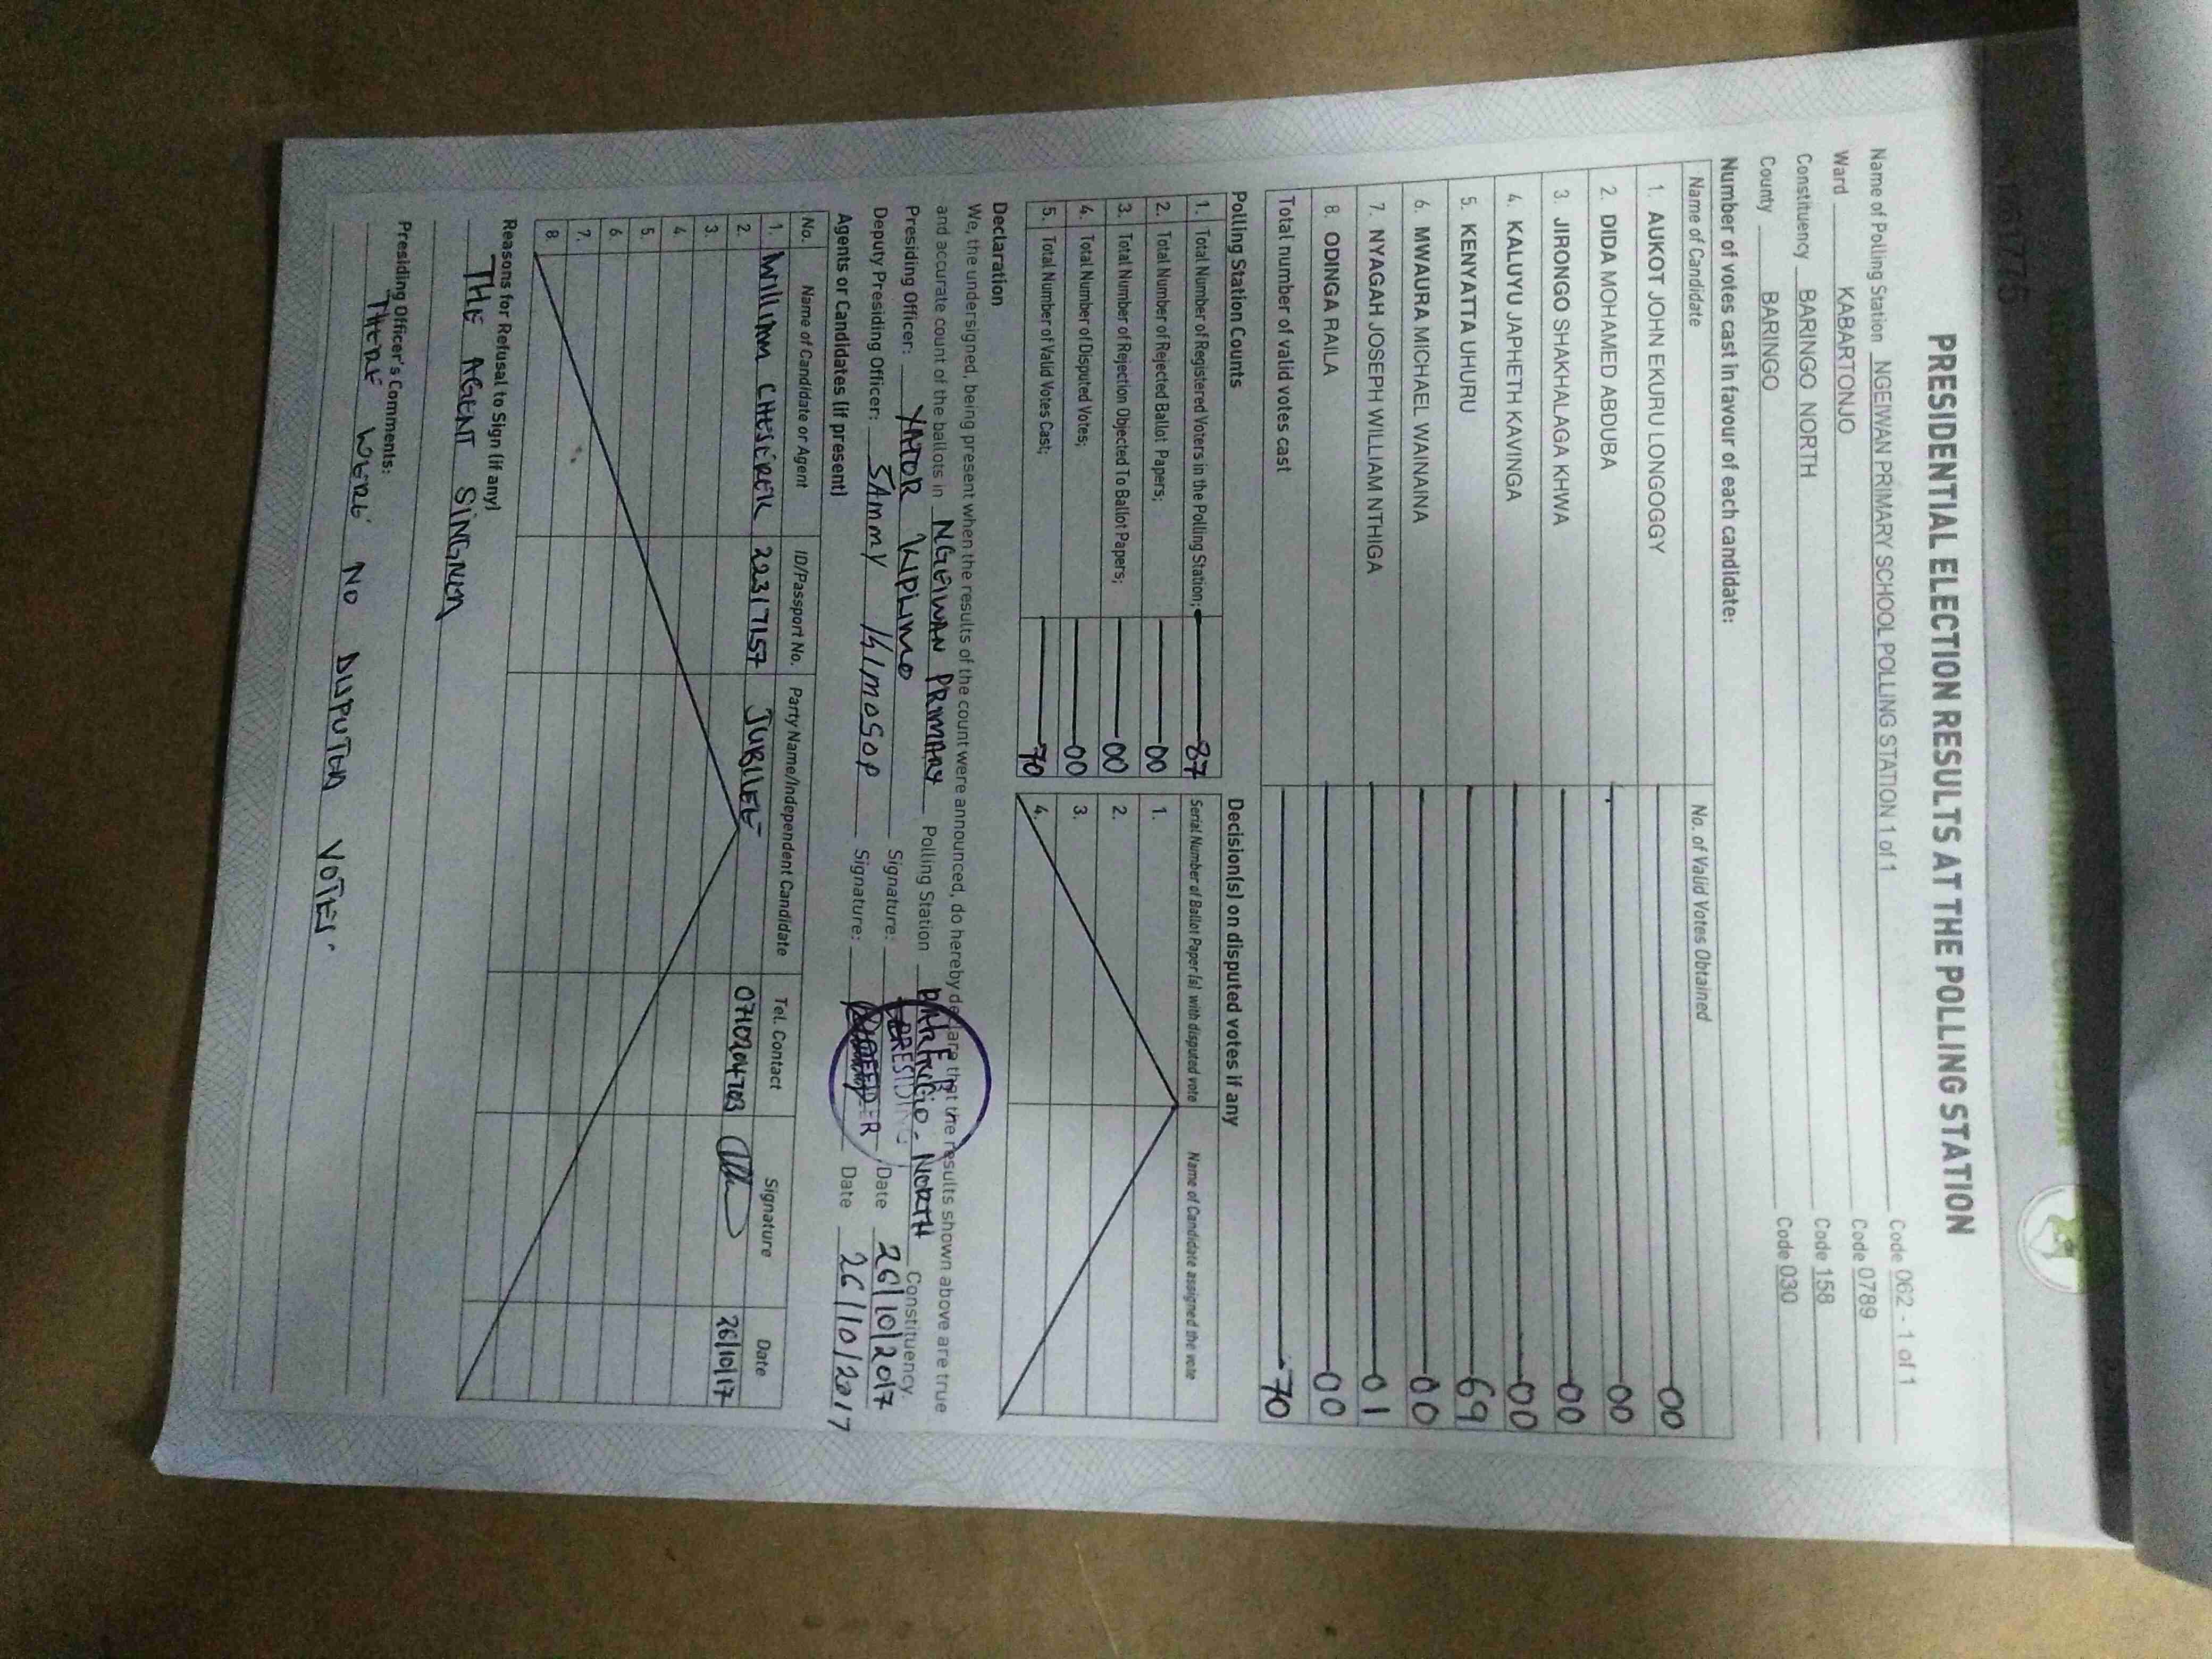 PRESIDENTIAL ELECTION RESULTS AT THE POLLING STATION
Name of Polling Station NGEIWAN PRIMARY SCHOOL POLLING STATION 1 of 1 Code 062 - 1 of 1
Ward KABARTONJO Code 0789
Constituency BARINGO NORTH Code 158
County BARINGO Code 030
Number of votes cast in favour of each candidate:
Name of Candidate No. of Valid Votes Obtained
1. AUKOT JOHN EKURU LONGOGGY 00
2. DIDA MOHAMED ABDUBA 00
3. JIRONGO SHAKHALAGA KHWA 00
4. KALUYU JAPHETH KAVINGA 00
5. KENYATTA UHURU 69
6. MWAURA MICHAEL WAINAINA 00
7. NYAGAH JOSEPH WILLIAM NTHIGA 01
8. ODINGA RAILA 00
Total number of valid votes cast 70
Polling Station Counts
1. Total Number of Registered Voters in the Polling Station; 87
2. Total Number of Rejected Ballot Papers; 00
3. Total Number of Rejection Objected To Ballot Papers; 00
4. Total Number of Disputed Votes; 00
5. Total Number of Valid Votes Cast; 70
Decision(s) on disputed votes if any
Serial Number of Ballot Paper (s) with disputed vote Name of Candidate assigned the vote
1.
2.
3.
4.
Declaration
We, the undersigned, being present when the results of the count were announced, do hereby declare that the results shown above are true
and accurate count of the ballots in NGEIWAN PRIMARY Polling Station NORTH Constituency
Presiding Officer: YATOR KIPLIMO Signature: Date 26/10/2017
Deputy Presiding Officer: SAMMY KIMOSOP Signature: Date 26/10/2017
PRESIDING
Agents or Candidates (if present)
No. Name of Candidate or Agent ID/Passport No. Party Name/Independent Candidate Tel. Contact Signature Date
1. WILLIAM CHESEREK 22317157 JUBILEE 0710204703 26/10/17
2.
3.
4.
5.
6.
7.
8.
Reasons for Refusal to Sign (if any)
THE AGENT SINGNED
Presiding Officer's Comments:
THERE WERE NO DUPUTED VOTES.